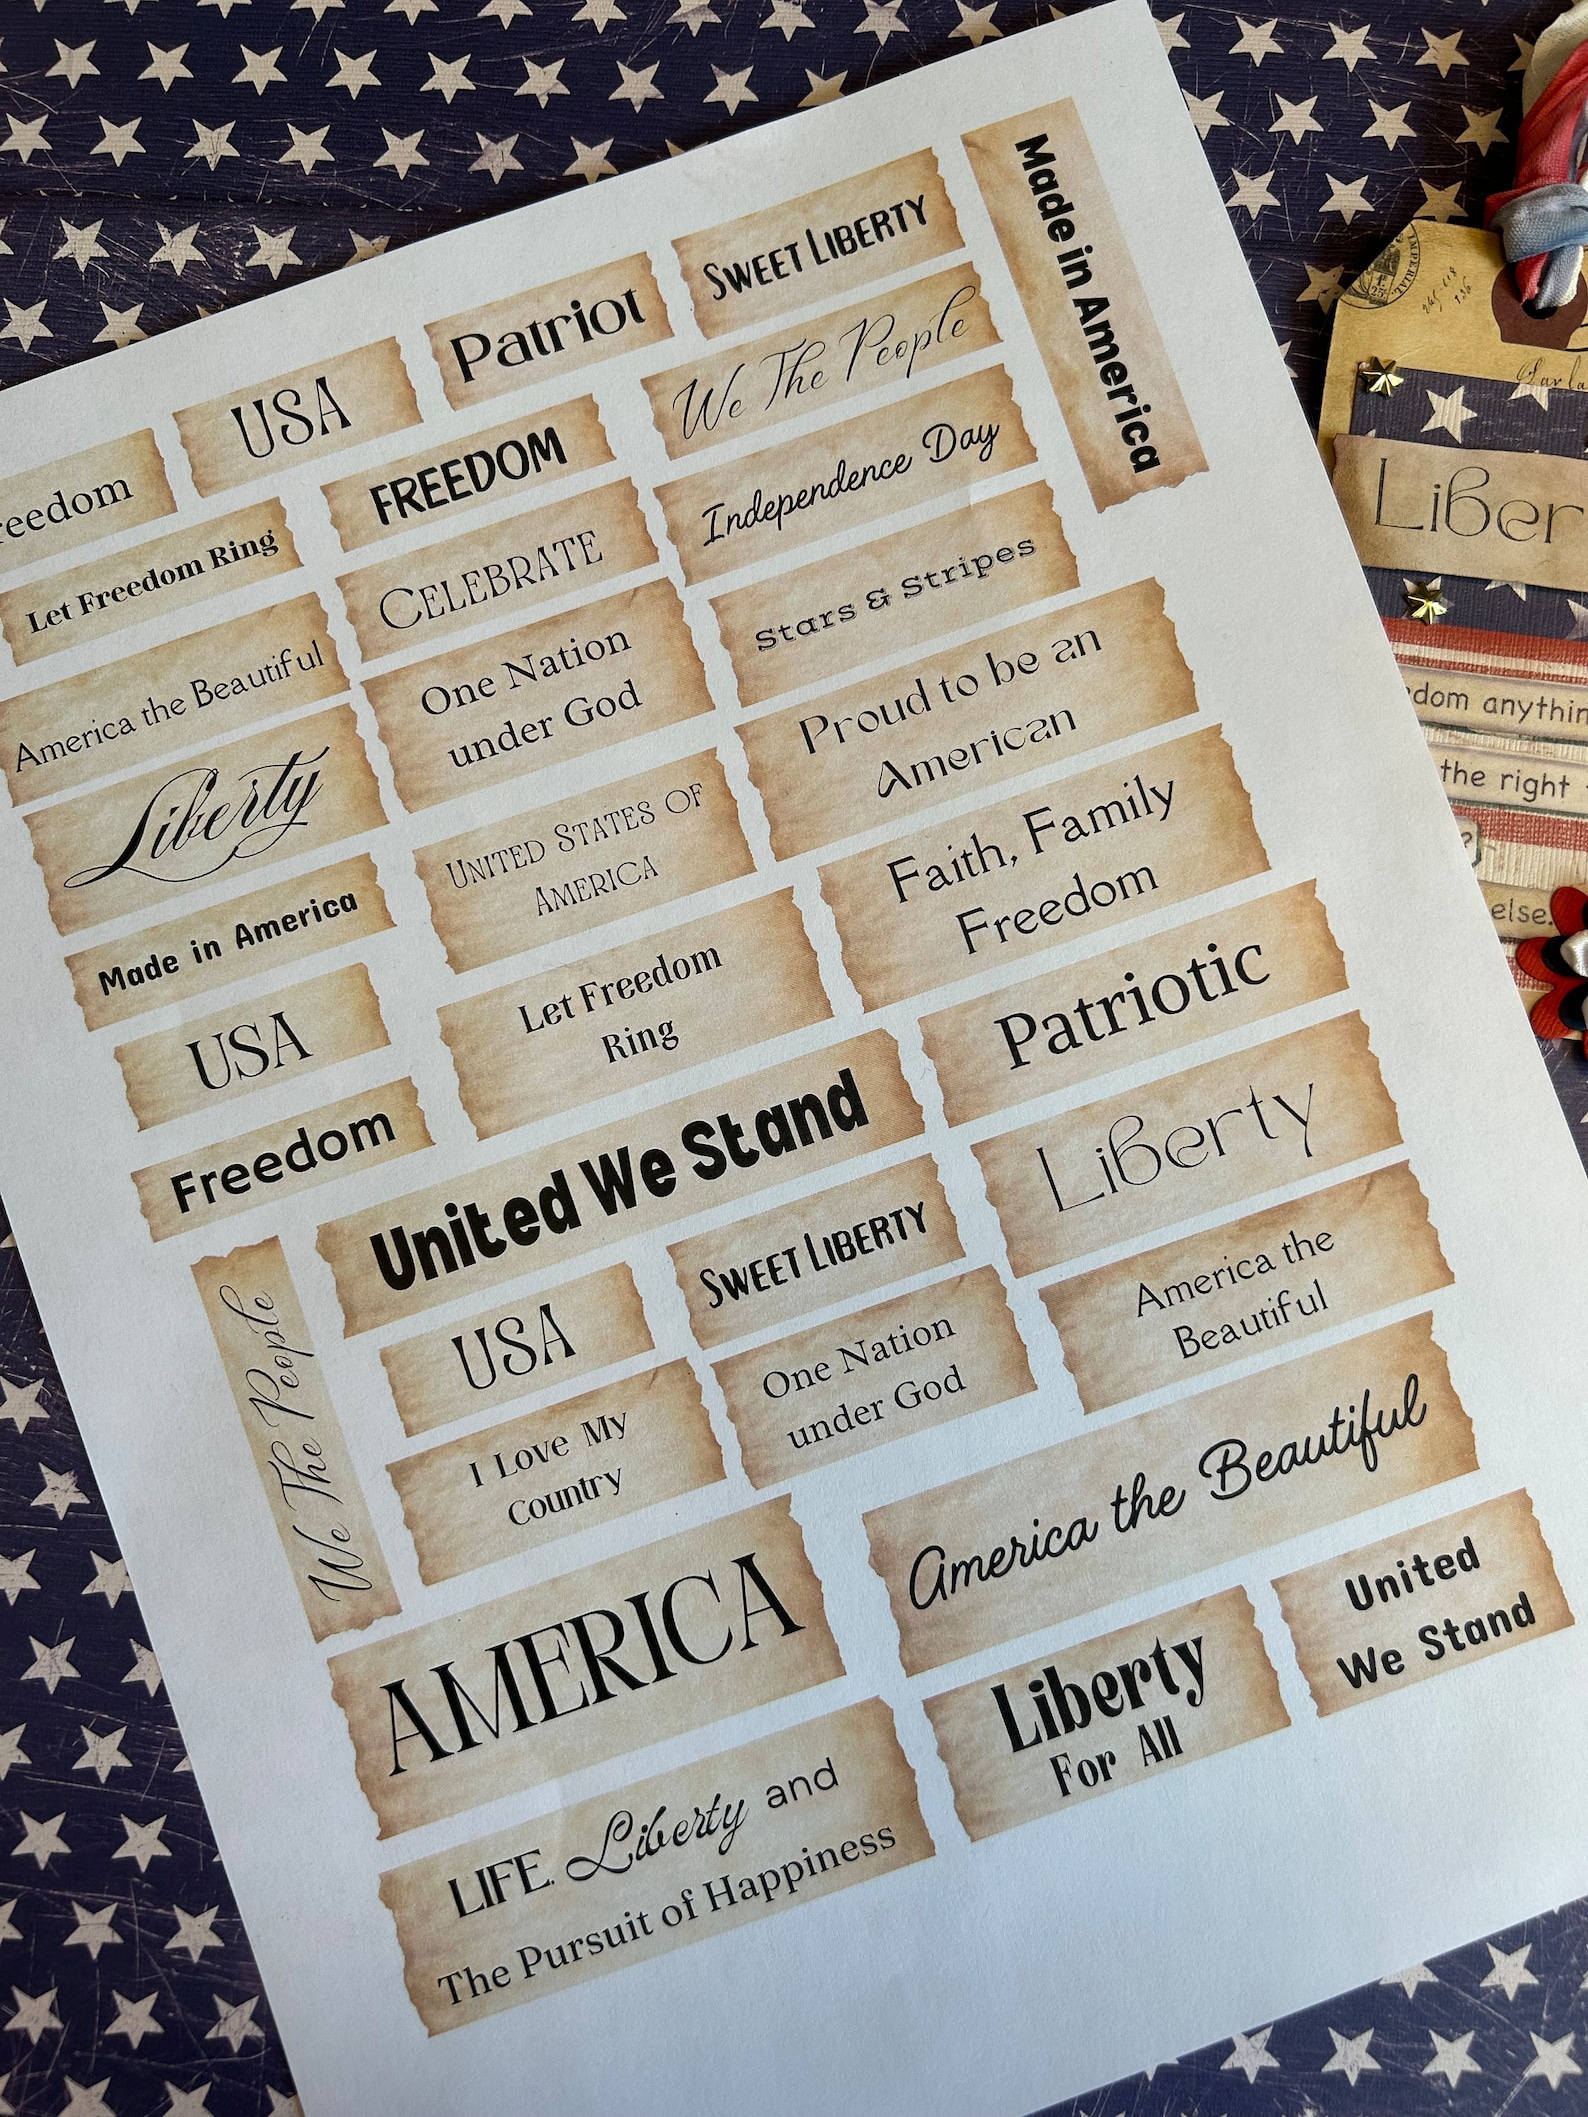 Made in America
SWEET LIBERTY
Patriot
USA
We The People
reedom
FREEDOM
Independence Day
Let Freedom Ring
CELEBRATE
Stars & Stripes
America the Beautiful
One Nation
under God
Proud to be an
American
Liberty
UNITED STATES OF
AMERICA
Faith, Family
Freedom
Made in America
Let Freedom
Ring
Patriotic
USA
United We Stand
Liberty
Freedom
SWEET LIBERTY
America the
Beautiful
We The People
USA
One Nation
under God
I Love My
Country
America the Beautiful
AMERICA
United
We Stand
Liberty
For All
LIFE. Liberty and
The Pursuit of Happiness
IMPERIAL
Liber
dom anythin
the right
else.